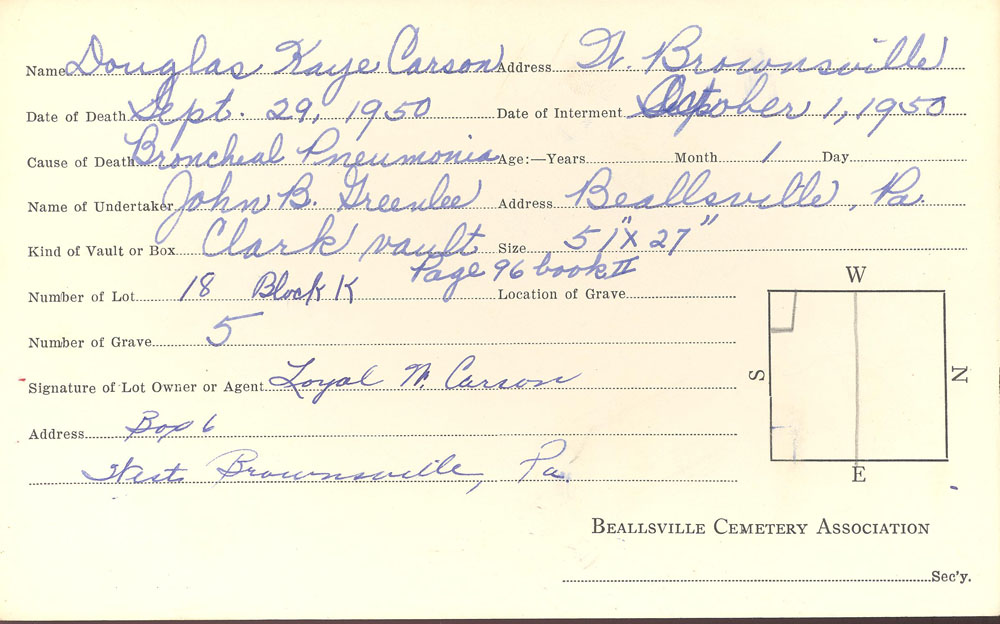 Name Douglas Kaye Carson Address W. Brownsville
Date of Death Sept. 29, 1950 Date of Interment October 1, 1950
Cause of Death Broncheal Pneumonia Age:—Years Month 1 Day
Name of Undertaker John B. Greenlee Address Beallsville, Pa.
Kind of Vault or Box Clark vault Size 51" X 27"
Page 96 book II
Number of Lot 18 Block K Location of Grave
Number of Grave 5
Signature of Lot Owner or Agent Loyal W. Carson
Address Box 6
West Brownsville, Pa.
W
S
N
E
BEALLSVILLE CEMETERY ASSOCIATION
Sec'y.